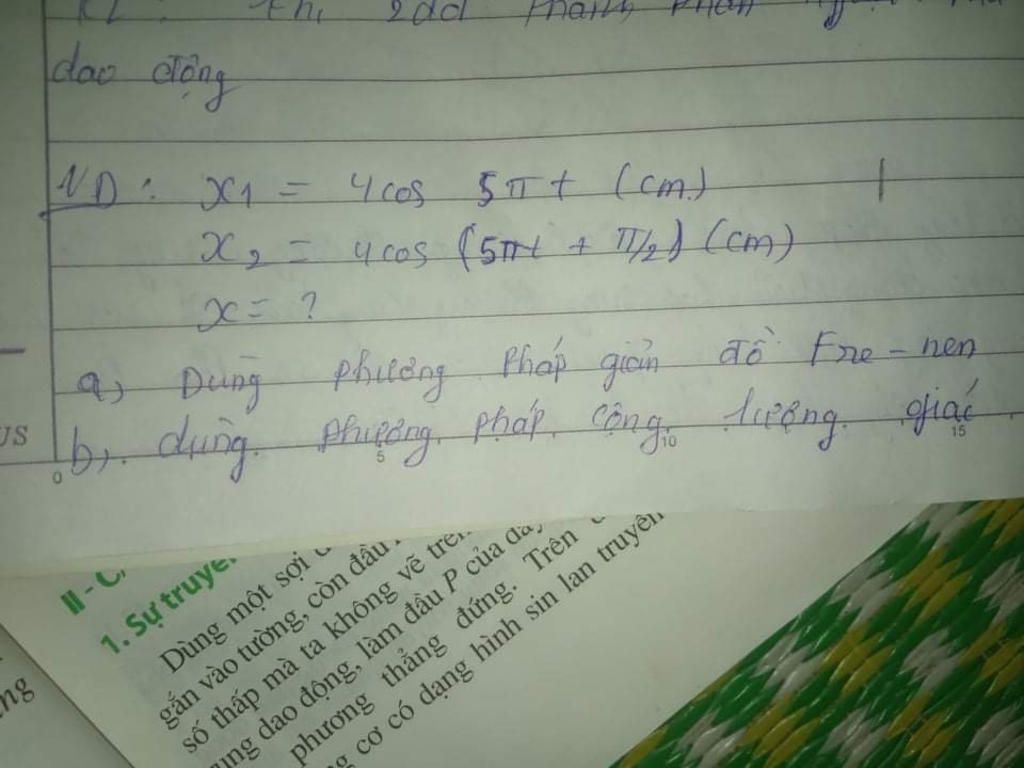 dao động
VD: x1 = 4cos 5πt (cm)
x2 = 4cos (5πt + π/2) (cm)
x = ?
a, Dùng phương pháp giản đồ Fre-nen
b, dùng phương pháp cộng lượng giác
US
0 5 10 15
1. Sự truyề
Dùng một sợi
gắn vào tường, còn đầu
số thấp mà ta không vẽ trên
dao động, làm đầu P của dây
phương thẳng đứng. Trên
cơ có dạng hình sin lan truyền